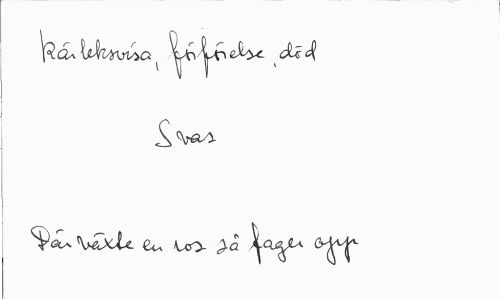 Kärleksvisa, förförelse, död
Svas
Där växte en ros så fager opp